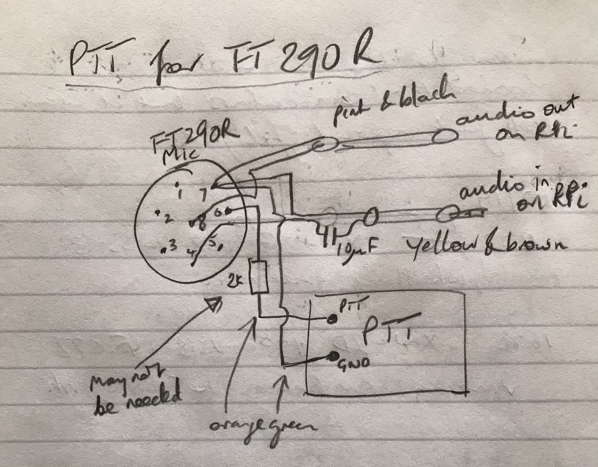 PTT for FT290R
pink & black
audio out
on RPi
FT290R
Mic
1 7
2 8 6
3 4 5
audio in
on RPi
10µF
yellow & brown
2K
PTT
PTT
GND
may not
be needed
orange green